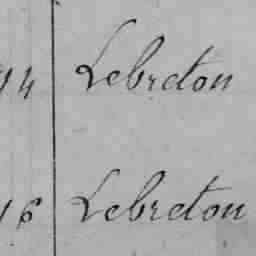 94 Lebreton
16 Lebreton